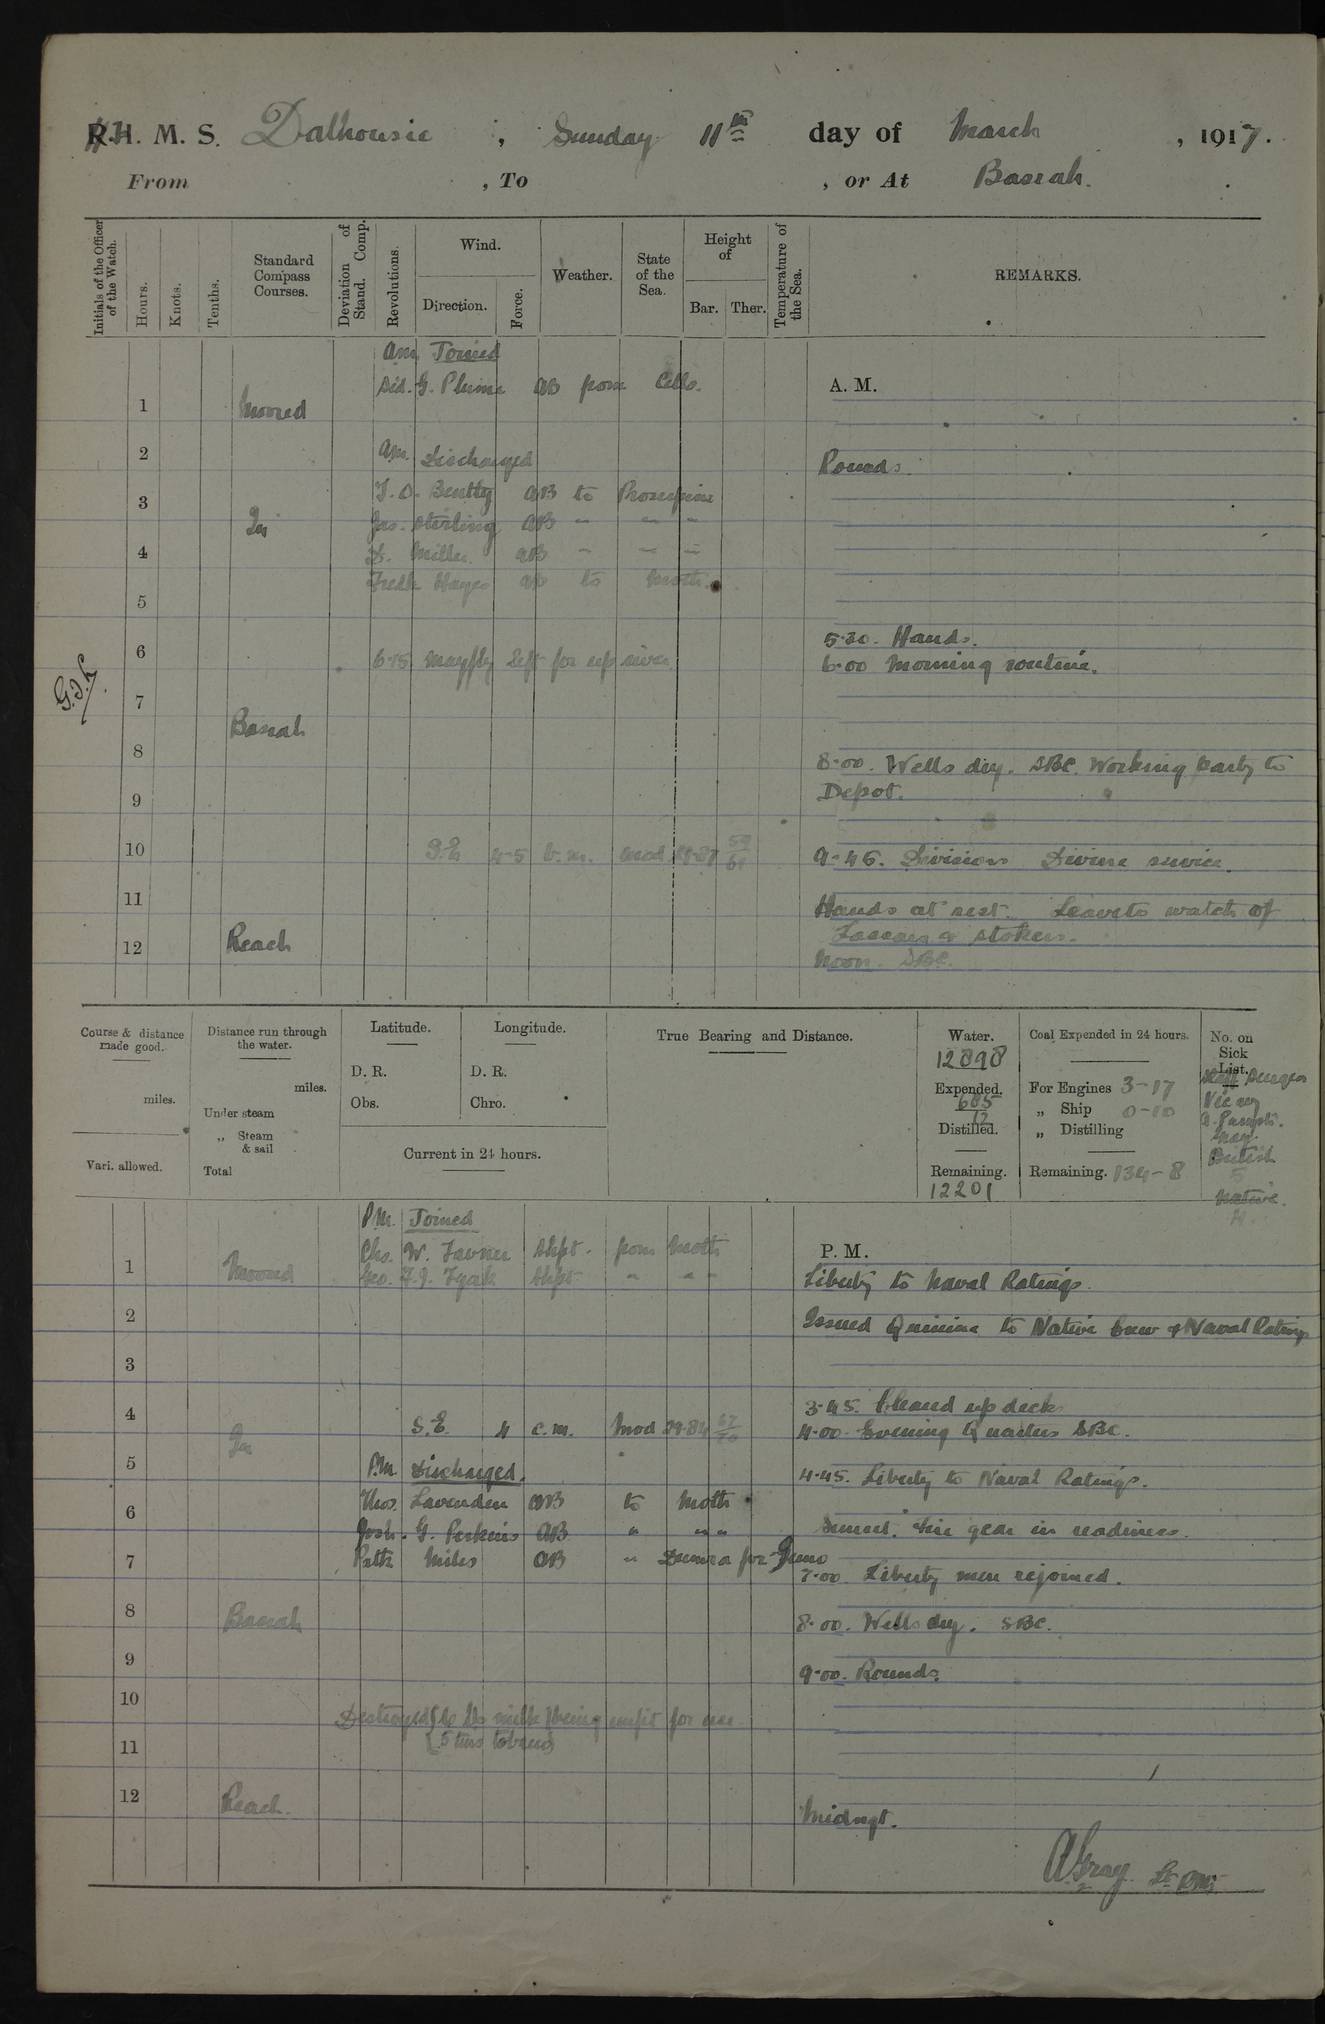 R.H. M. S. Dalhousie , Sunday 11th day of March , 1917.
From , To , or At Basrah.
Initials of the Officer of the Watch.
Hours.
Knots.
Tenths.
Standard Compass Courses.
Deviation of Stand. Comp.
Revolutions.
Wind.
Direction.
Force.
Weather.
State of the Sea.
Height of
Bar. Ther.
Temperature of the Sea.
REMARKS.
am Joined
Sid. G. Plume AB from Cells.
A. M.
1 Moored
2 am. Discharged
Rounds.
3 T. O. Bentley AB to Proserpine
Jas. Sterling AB " " "
In
4 D. Miller AB " " "
Fredk Hayes AB to Moth.
5
5.30. Hands.
6 6.15 Mayfly left for up river
6.00 Morning routine.
7
Basrah
8
8.00. Wells dry. SBC. Working party to
9 Depot.
10 S.E 4-5 b.m. Mod
9.45. Divisions Divine service.
11 Hands at rest. Leave to watch of
Lascars & stokers.
12 Reach
Noon. SBC.
Course & distance made good.
miles.
Vari. allowed.
Distance run through the water.
miles.
Under steam
„ Steam & sail
Total
Latitude.
D. R.
Obs.
Longitude.
D. R.
Chro.
Current in 24 hours.
True Bearing and Distance.
Water.
12898
Expended.
685
12
Distilled.
Remaining.
12201
Coal Expended in 24 hours.
For Engines 3-17
„ Ship 0-10
„ Distilling
Remaining. 134-8
No. on Sick List.
Staff Surgeon
British
5
Native.
4.
P.M. Joined
Chs. W. Favner from Moth
P. M.
1 Moored Geo. F.J. " " "
Liberty to Naval Ratings.
2 Issued Quinine to Native Crew & Naval Ratings
3
3.45. Cleared up decks
4 S.E. 4 c.m. Mod 29.84 67/70
4.00. Evening Quarters SBC.
In
5 P.M. Discharged.
4.45. Liberty to Naval Ratings.
Thos. Lavender AB to Moth
6 Josh. G. Perkins AB " " "
Sunset. Fire gear in readiness.
7 Patk Miles AB " for Juno
7.00 Liberty men rejoined.
8 Basrah
8.00. Wells dry. SBC.
9
9.00. Rounds.
10
Destroyed milk being unfit for use
11 5 tins tobacco
12 Reach.
Midngt.
A Gray Lt RIM